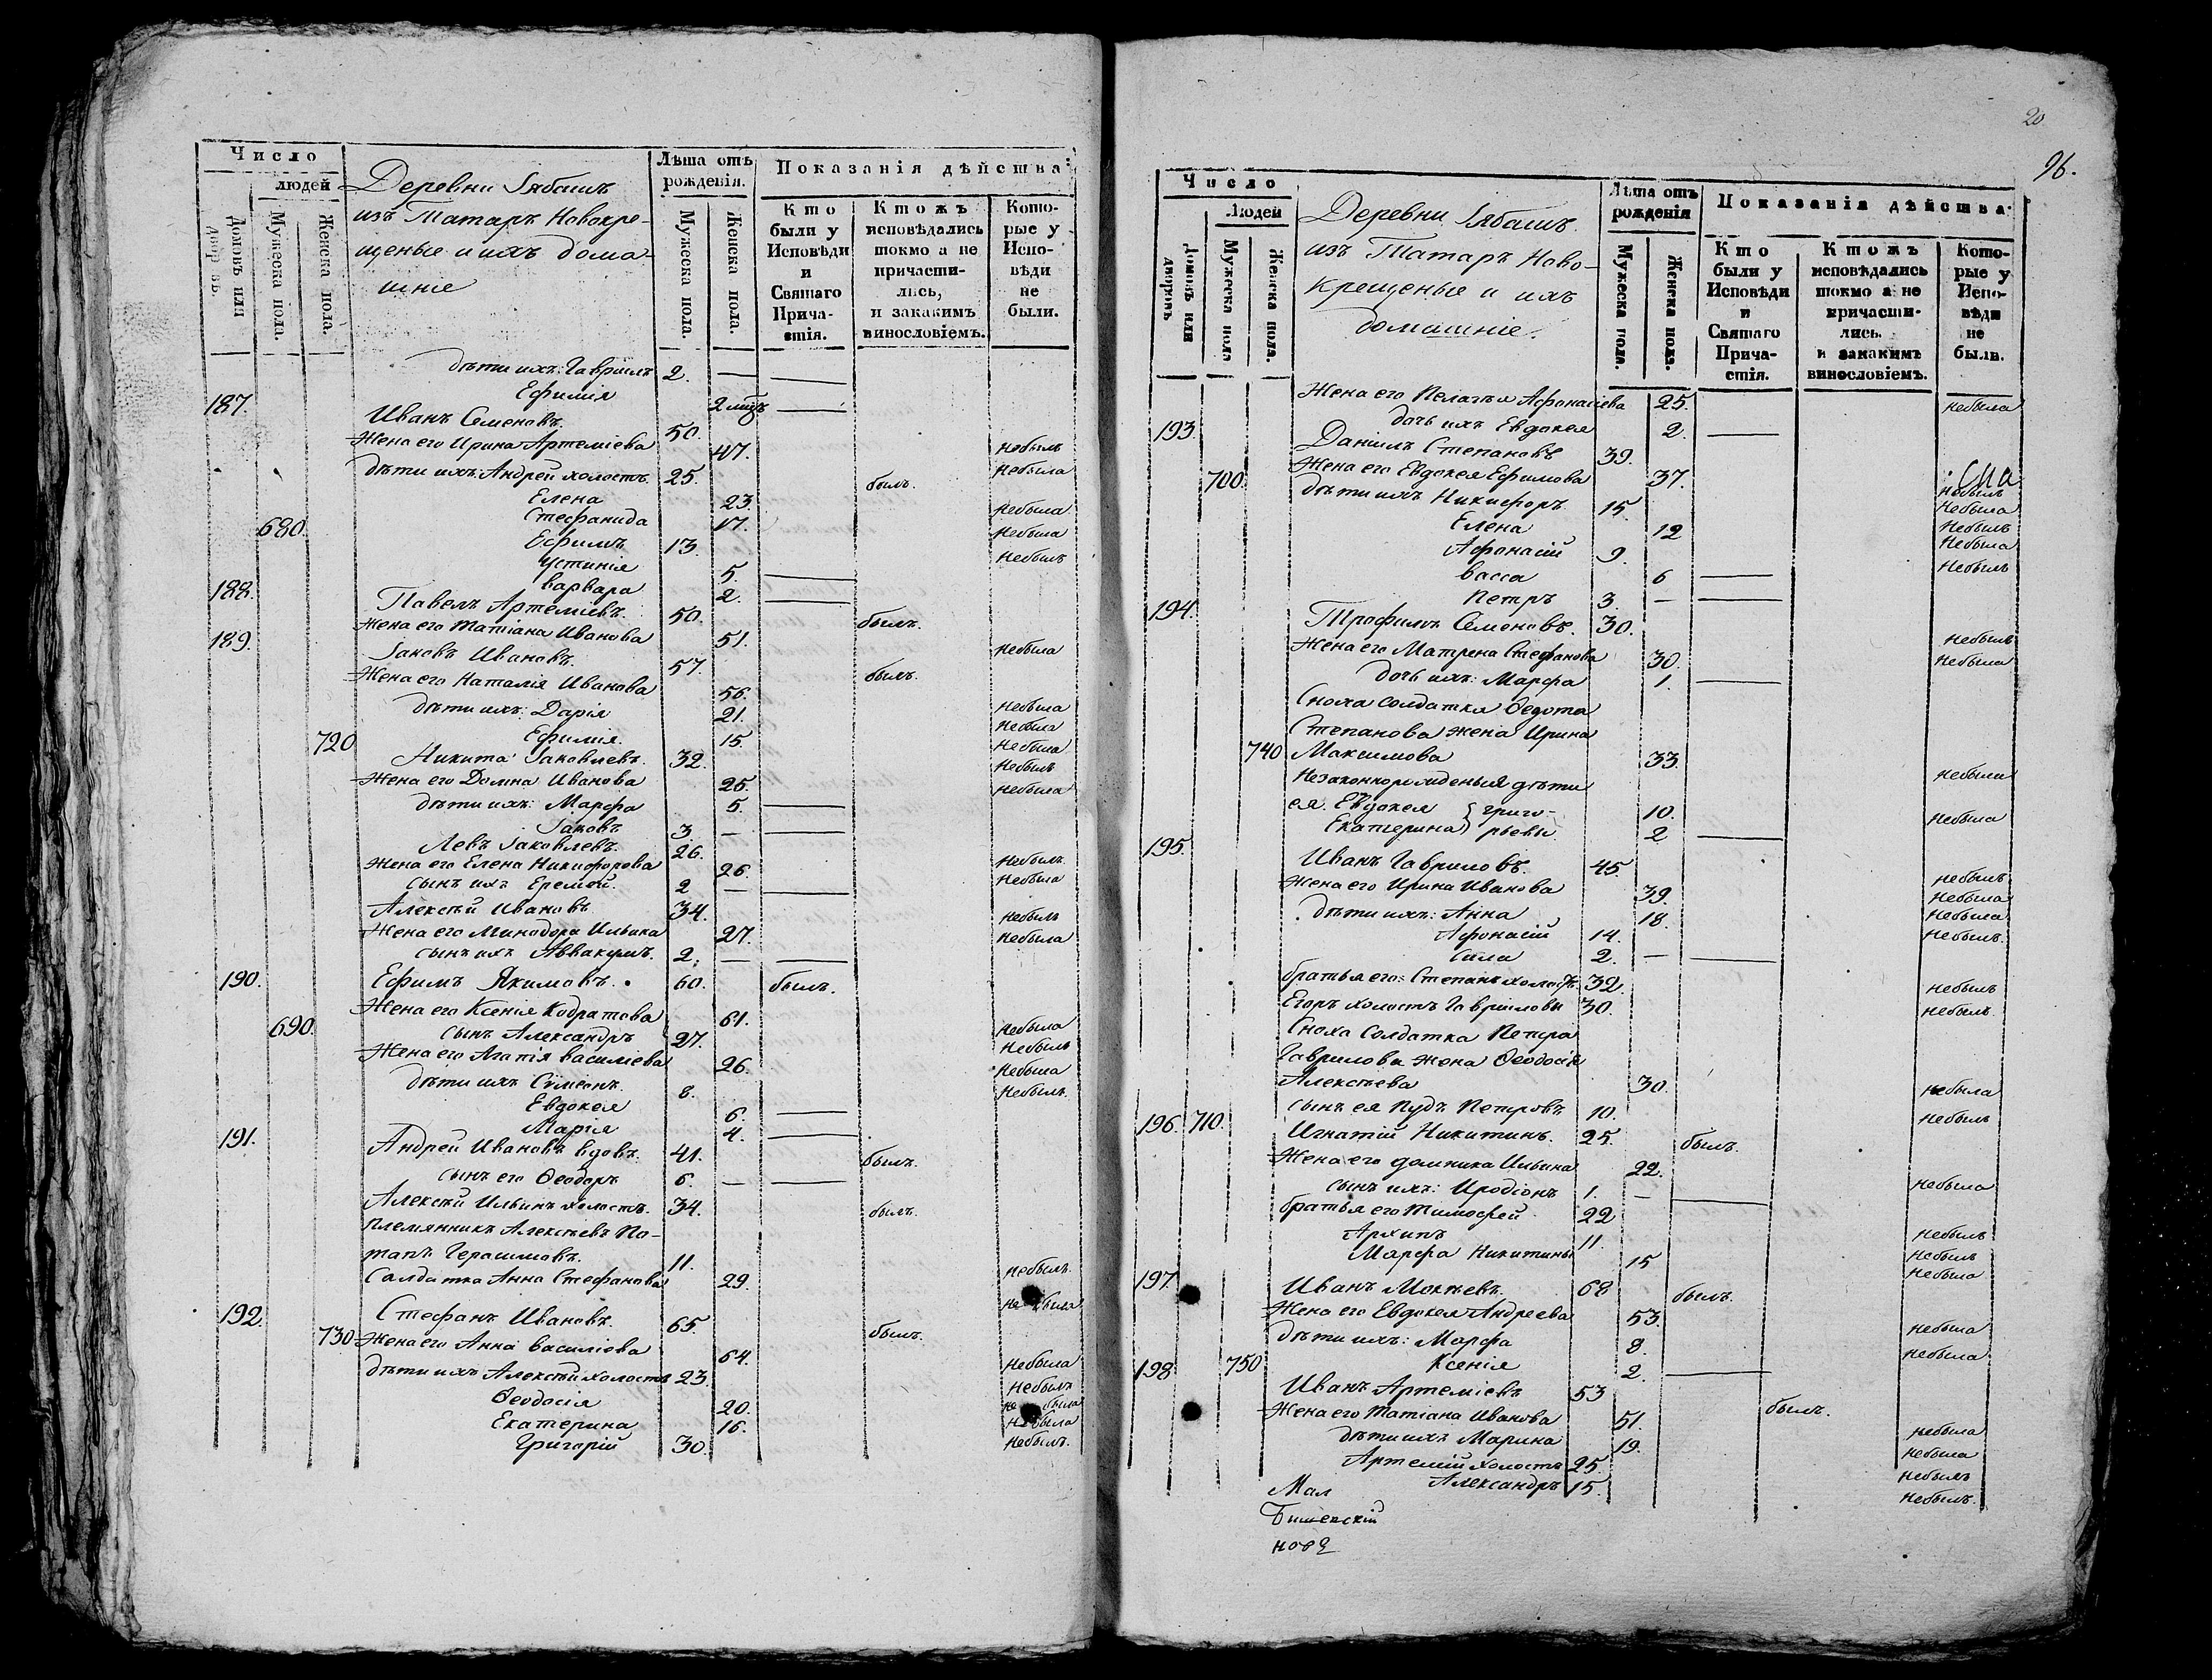 Число
людей
Домовъ или дворовъ
Мужеска пола.
Женска пола.
Деревни Ѕябашъ
изъ Татаръ Новокре-
щеные и ихъ дома-
шніе
Лѣта отъ рожденія.
Мужеска пола.
Женска пола.
Показанія дѣйства:
Кто были у Исповѣди и Святаго Прича-стія.
Ктожъ исповѣдались токмо а не причасти-лись, и закакимъ винословіемъ.
Кото-рые у Испо-вѣди не были.
дѣти ихъ: Гавріилъ 2. — —
Ефимія 2 —
187. Иванъ Семеновъ. 50. небылъ
Жена его Ирина Артеміева 47. небыла
дѣти ихъ: Андрей холостъ. 25. былъ.
Елена 23. небыла
Стефанида 17. небыла
680. Ефимъ 13. небылъ
Устинія 5. —
Варвара 2. —
188. Павелъ Артеміевъ. 50. былъ.
Жена его Татіана Иванова 51. небыла
189. Ѕаковъ Ивановъ. 57. былъ.
Жена его Наталія Иванова 56. небыла
дѣти ихъ: Дарія 21. небыла
720 Ефимія. 15. небыла
Никита Ѕаковлевъ. 32. небылъ
Жена его Домна Иванова 25. небыла
дѣти ихъ: Марфа 5. —
Ѕаковъ 3 — —
Левъ Ѕаковлевъ. 26. небылъ
Жена его Елена Никифорова 26. небыла
сынъ ихъ Еремѣй. 2 — —
Алексѣй Ивановъ 34. небылъ
Жена его Минодора Ильина 27. небыла
сынъ ихъ Аввакумъ. 2. — —
190. Ефимъ Якимовъ. 60. былъ.
Жена его Ксенія Кодратова 61. небыла
690. сынъ Александръ 27. небылъ
Жена его Агапія Василиева 26. небыла
дѣти ихъ Симеонъ. 8. небылъ.
Евдокея 6. —
Марія 4. —
191. Андрей Ивановъ вдовъ. 41. былъ.
сынъ его Ѳеодоръ 6. — —
Алексѣй Ильинъ холостъ. 34. былъ.
племянникъ Алексѣевъ По-
тапъ Герасимовъ. 11. небылъ.
Салдатка Анна Стефанова 29. небыла
192. Стефанъ Ивановъ. 65. былъ.
730 Жена его Анна Василіева 64. небыла
дѣти ихъ Алексѣй холостъ 23. небылъ
Ѳеодосія 20. небыла
Екатерина 16. небыла
Григорій 30. небылъ.
20
96.
Число
Людей
Домовъ или дворовъ
Мужеска пола
Женска пола.
Деревни Ѕябашъ.
изъ Татаръ Ново-
Крещеные и ихъ
домашніе.
Лѣта отъ рожденія
Мужеска пола.
Женска пола.
Показанія дѣйства:
Кто были у Исповѣди и Святаго Прича-стія.
Ктожъ исповѣдались токмо а не причасти-лись. и закакимъ винословіемъ.
Кото-рые у Испо-вѣди не были.
Жена его Пелагѣя Афонасіева 25. небыла
дочь ихъ Евдокея 2. —
193. Даніилъ Степановъ 39. небылъ
Жена его Евдокея Ефимова 37. небыла
700. дѣти ихъ Никифоръ 15 небылъ
Елена 12 небыла
Афонасій 9. небылъ
Васса 6 —
Петръ 3. — —
194. Трофимъ Семеновъ. 30. небылъ
Жена его Матрена Стефанова 30. небыла
дочь ихъ: Марфа 1. —
Сноха солдатка Ѳедота
Степанова жена Ирина
740 Максимова 33. небыла
Незаконнорожденыя дѣти
ея. Евдокея } Григо- 10. небыла
Екатерина } рьевы 2 —
195. Иванъ Гавриловъ. 45. небылъ
Жена его Ирина Иванова 39. небыла
дѣти ихъ: Анна 18. небыла
Афонасій 14. небылъ.
Сила 2. — —
братья его: Степанъ холостъ. 32. небылъ
Егоръ холостъ Гавриловы 30. небылъ.
Сноха солдатка Петра
Гаврилова жена Ѳеодосія
Алексѣева 30. небыла
сынъ ея Пудъ Петровъ 10. небылъ
196. 710. Игнатій Никитинъ. 25. былъ.
Жена его Домника Ильина 22. небыла
сынъ ихъ: Иродіонъ 1. — —
братья его Тимофей 22 небылъ
Архипъ 11. небылъ
Марфа Никитины 15 небыла
197. Иванъ 68 былъ.
Жена его Евдокея Андреева 53. небыла
дѣти ихъ: Марфа 8. небыла
750 Ксенія 2. —
198 Иванъ Артеміевъ 53 былъ.
Жена его Татіана Иванова 51. небыла
дѣти ихъ Марина 19. небыла
Артемій холостъ 25. небылъ
Александръ 15. небылъ.
Мал